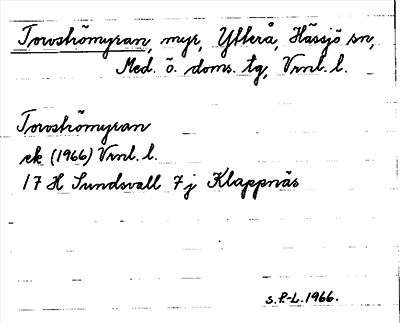 Torvströmyran, myr, Ytterå, Hässjö sn,
Med. ö. doms. tg, Vrnl. l.
Torvströmyran
ek (1966) Vrnl. l.
17 H Sundsvall 7j Klappnäs
s. P.-L. 1966.